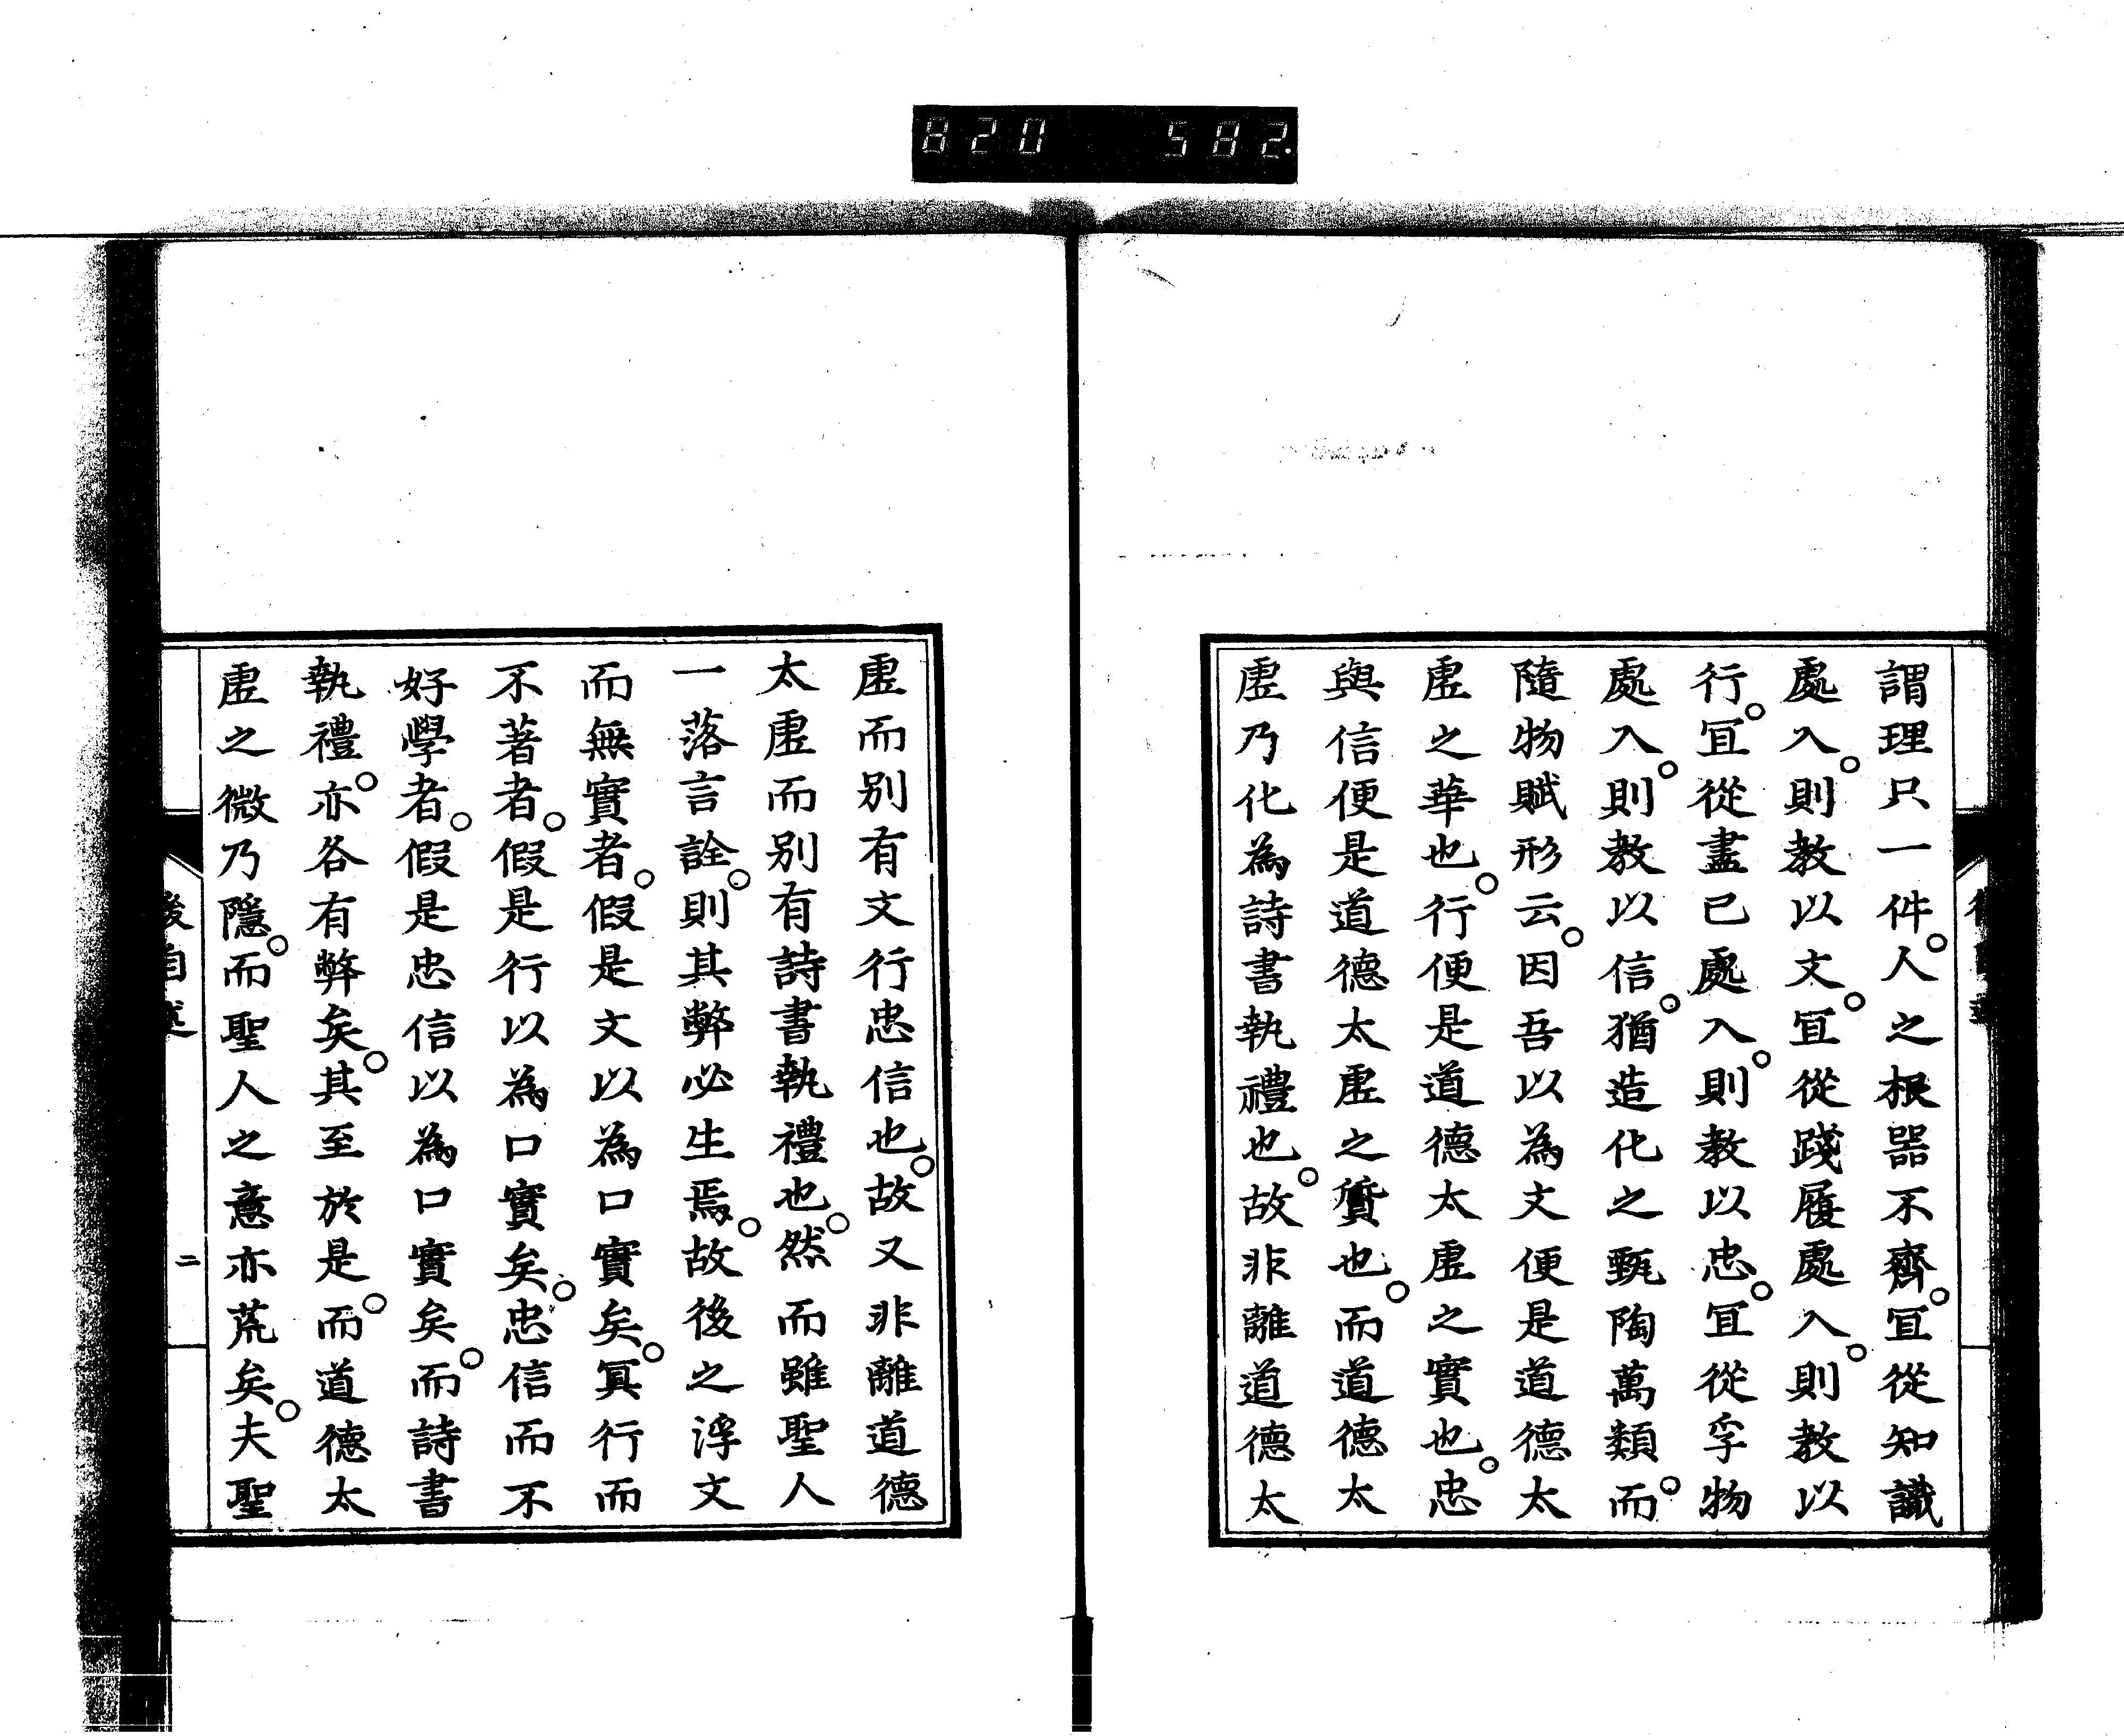 820 582.
謂理只一件。人之根器不齊。冝從知識
處入。則教以文。冝從踐履處入。則教以
行。冝從盡己處入。則教以忠。冝從孚物
處入。則教以信。猶造化之甄陶萬類。而
隨物賦形云。因吾以為文便是道德太
虛之華也。行便是道德太虛之實也。忠
與信便是道德太虛之質也。而道德太
虛乃化為詩書執禮也。故非離道德太
虛而別有文行忠信也。故又非離道德
太虛而別有詩書執禮也。然而雖聖人
一落言詮。則其弊必生焉。故後之浮文
而無實者。假是文以為口實矣。冥行而
不著者。假是行以為口實矣。忠信而不
好學者。假是忠信以為口實矣。而詩書
執禮。亦各有弊矣。其至於是。而道德太
虛之微乃隱。而聖人之意亦荒矣。夫聖
後自述
二